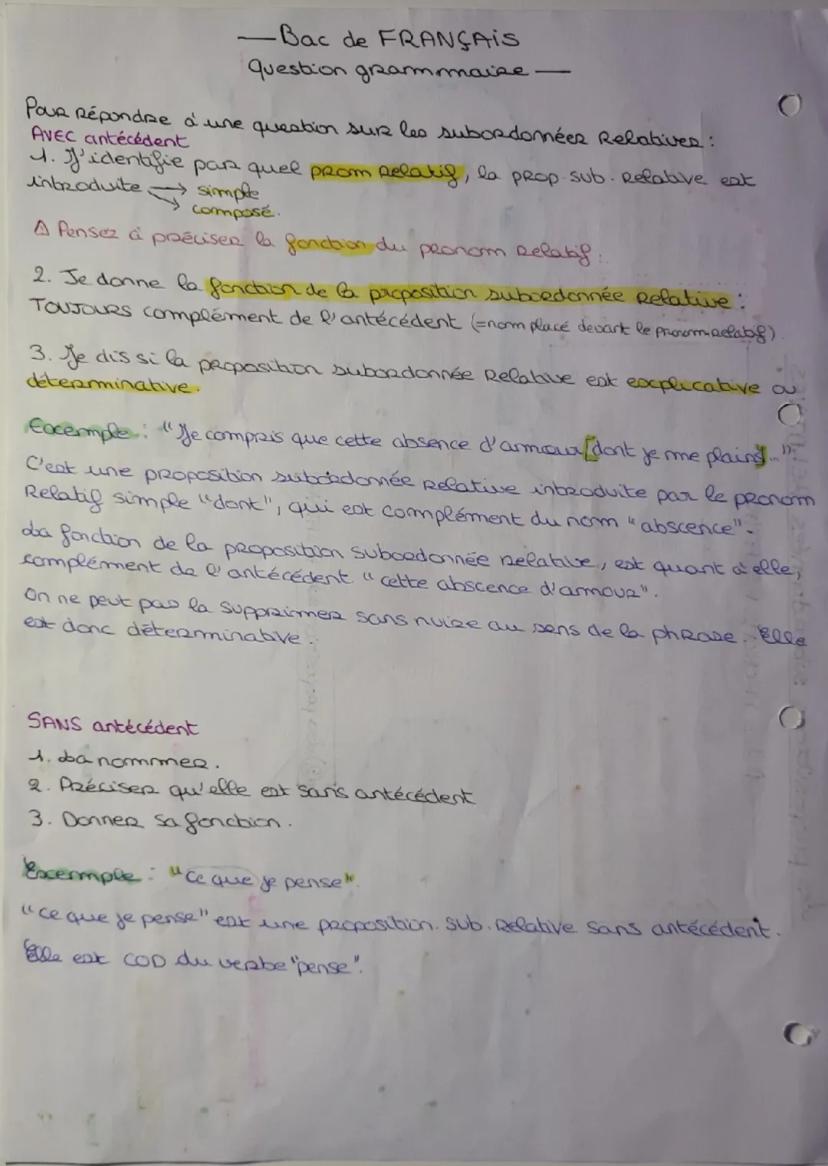 — Bac de FRANÇAIS
Question grammaire —
Pour répondre à une question sur les subordonnées Relatives :
AVEC antécédent
1. J'identifie par quel pronom Relatif, la prop. sub. Relative est
introduite → simple
→ composé.
⚠ Pensez à préciser la fonction du pronom Relatif.
2. Je donne la fonction de la proposition subordonnée Relative :
TOUJOURS complément de l'antécédent (= nom placé devant le pronom relatif)
3. Je dis si la proposition subordonnée Relative est explicative ou
déterminative.
Exemple : "Je compris que cette absence d'amour [dont je me plains]..."
C'est une proposition subordonnée Relative introduite par le pronom
Relatif simple "dont", qui est complément du nom "abscence".
La fonction de la proposition subordonnée relative, est quant à elle,
complément de l'antécédent "cette abscence d'amour".
On ne peut pas la supprimer sans nuire au sens de la phrase. Elle
est donc déterminative.
SANS antécédent
1. La nommer.
2. Préciser qu'elle est sans antécédent
3. Donner sa fonction.
Exemple : "Ce que je pense"
"Ce que je pense" est une proposition. sub. Relative sans antécédent.
Elle est COD du verbe "pense".